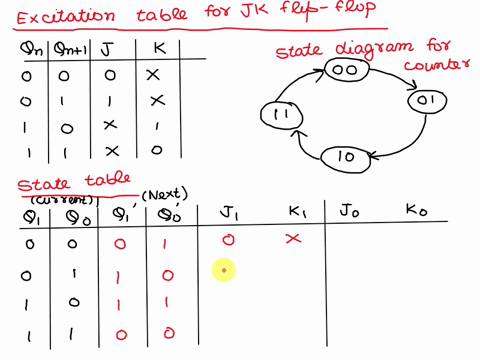 Excitation table for JK flip-flop
Qn Qn+1 J K
0 0 0 X
0 1 1 X
1 0 X 1
1 1 X 0
State diagram for
counter
00
01
10
11
State table
(Current) (Next)
Q1 Q0 Q1' Q0' J1 K1 J0 K0
0 0 0 1 0 X
0 1 1 0
1 0 1 1
1 1 0 0